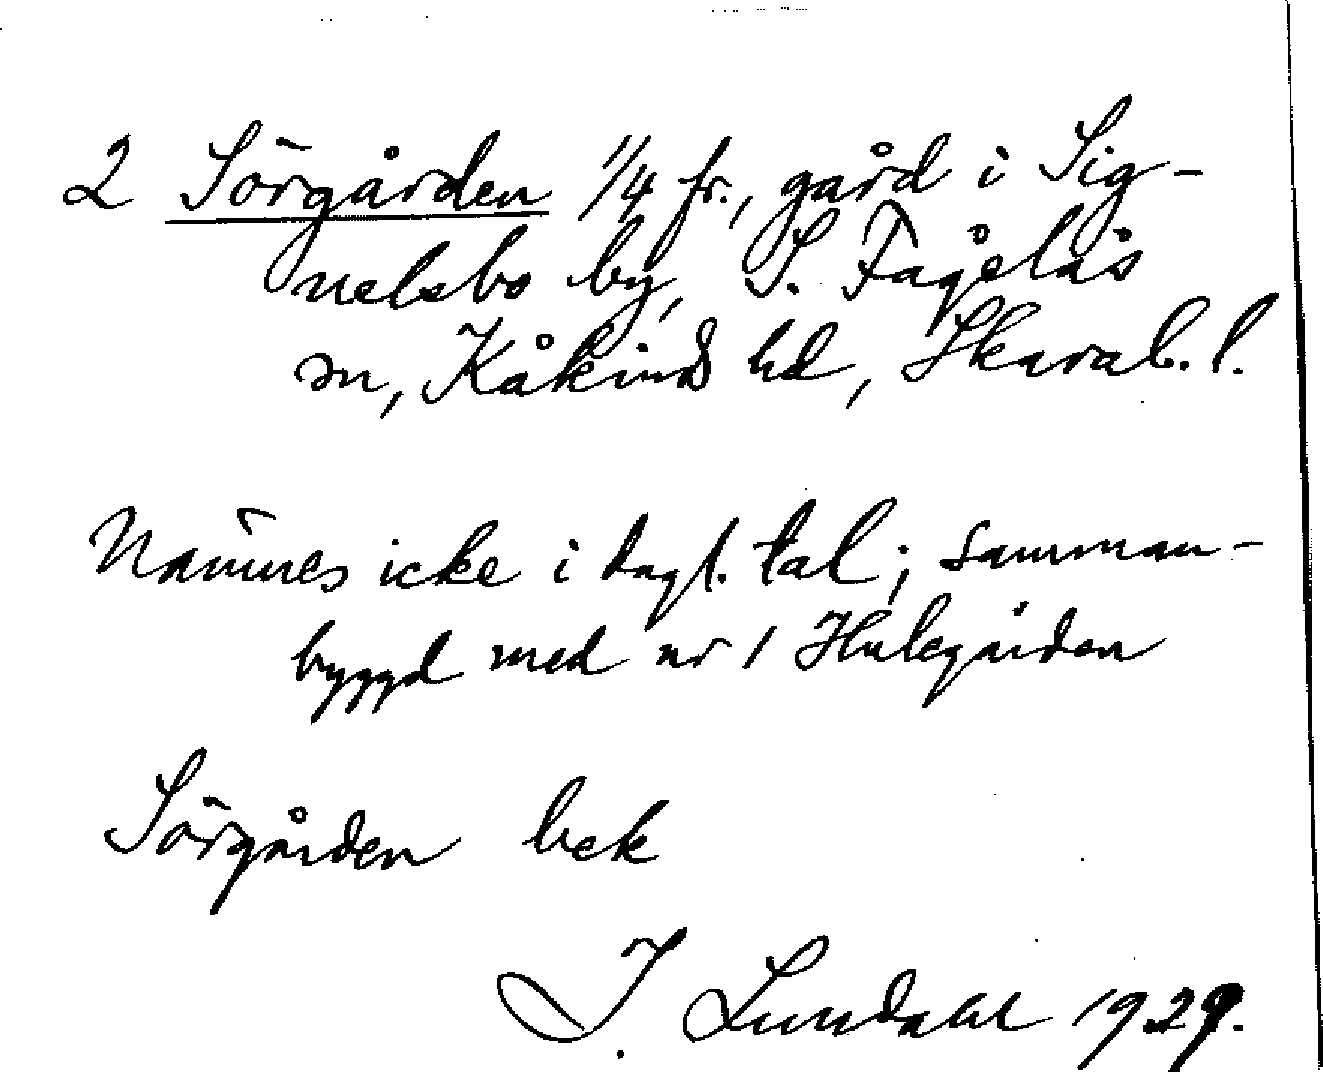 2 Sörgården 1/4 fr., gård i Sig-
nelsbo by, S. Fågelås
sn, Kåkinds hd, Skarab. l.
Nämnes icke i dagl. tal; samman-
byggd med nr 1 Hulegården
Sörgården bek
I. Lundahl 1929.